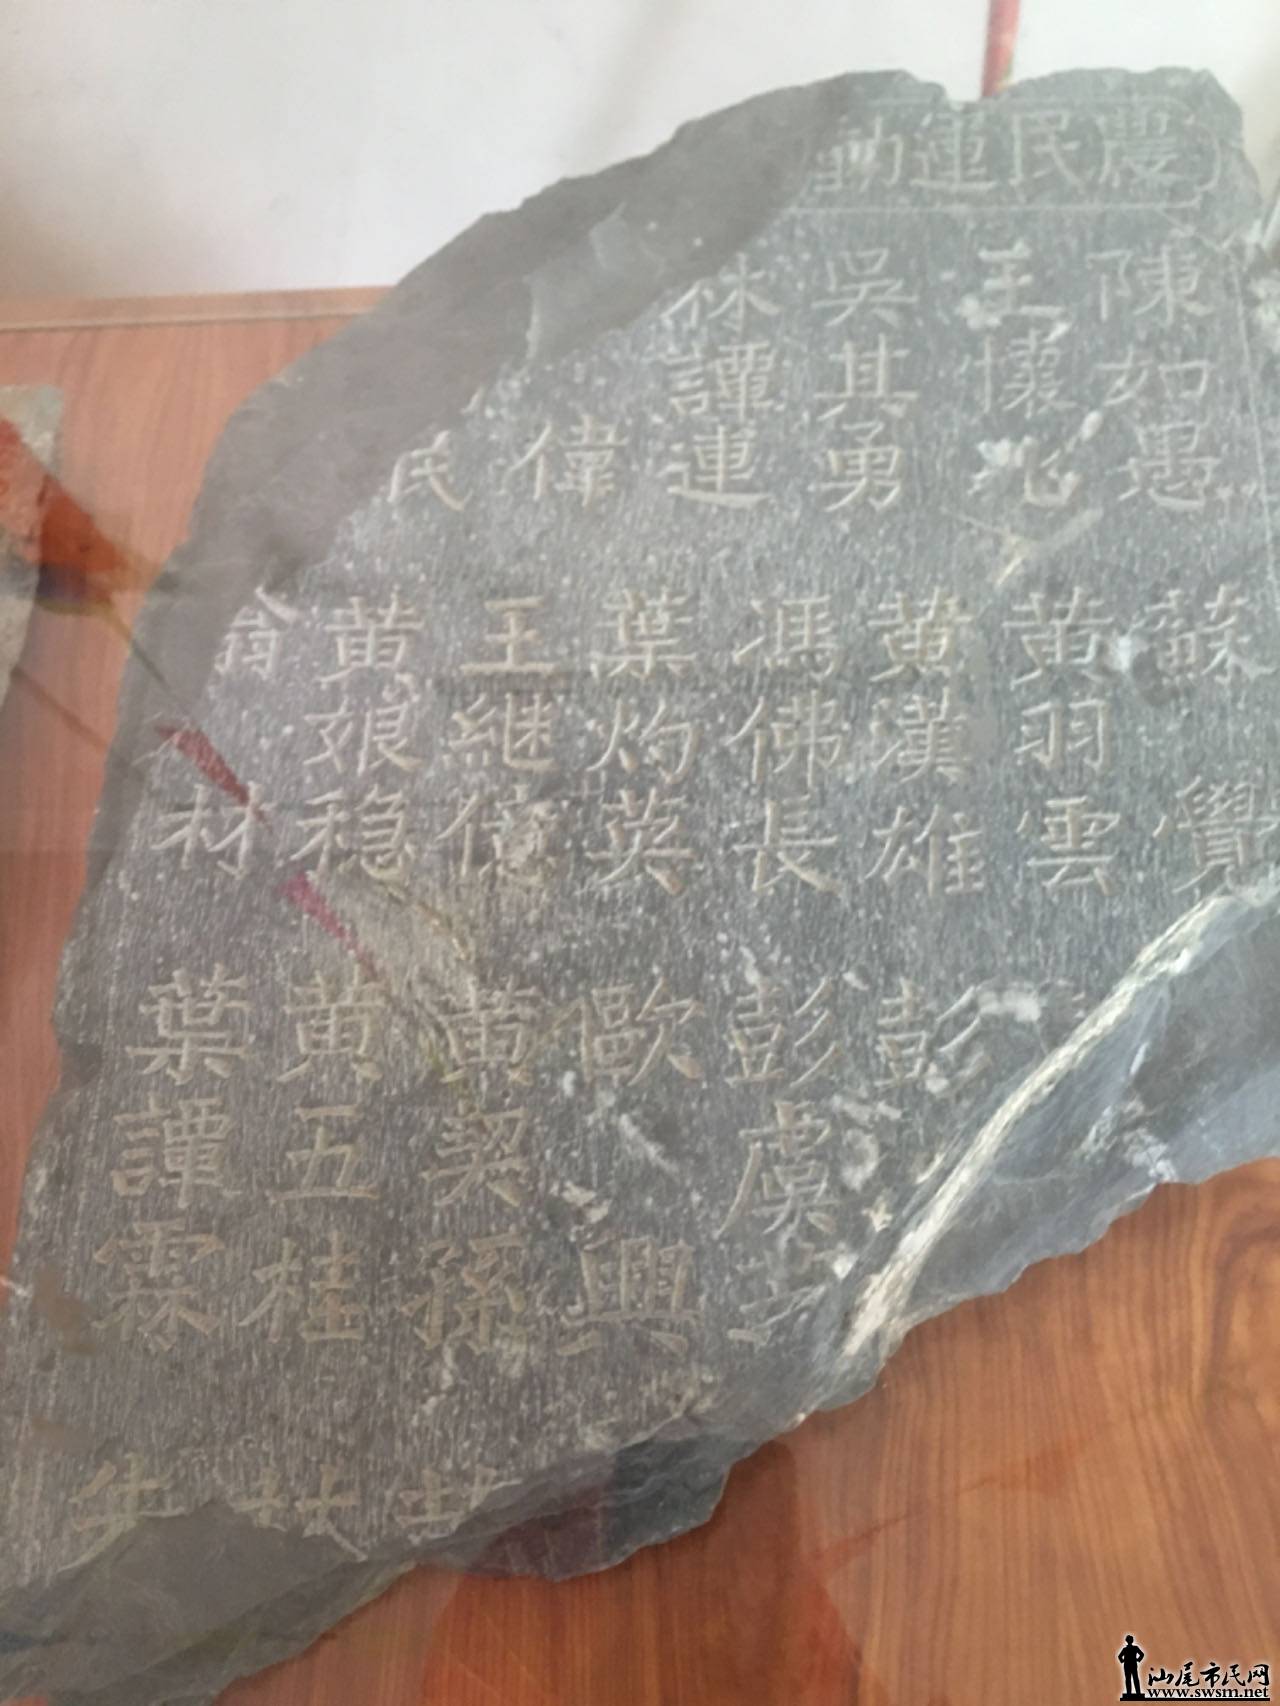 農民運動
陳如愚
王懷
吳其勇
林譚連
偉
民
蘇覺
黄羽雲
黄漢雄
馮佛長
葉灼英
王継億
黄娘稳
翁材
彭
彭虞
歐興
黄契孫
黄五桂
葉譚霖
汕尾市民网
www.swsm.net